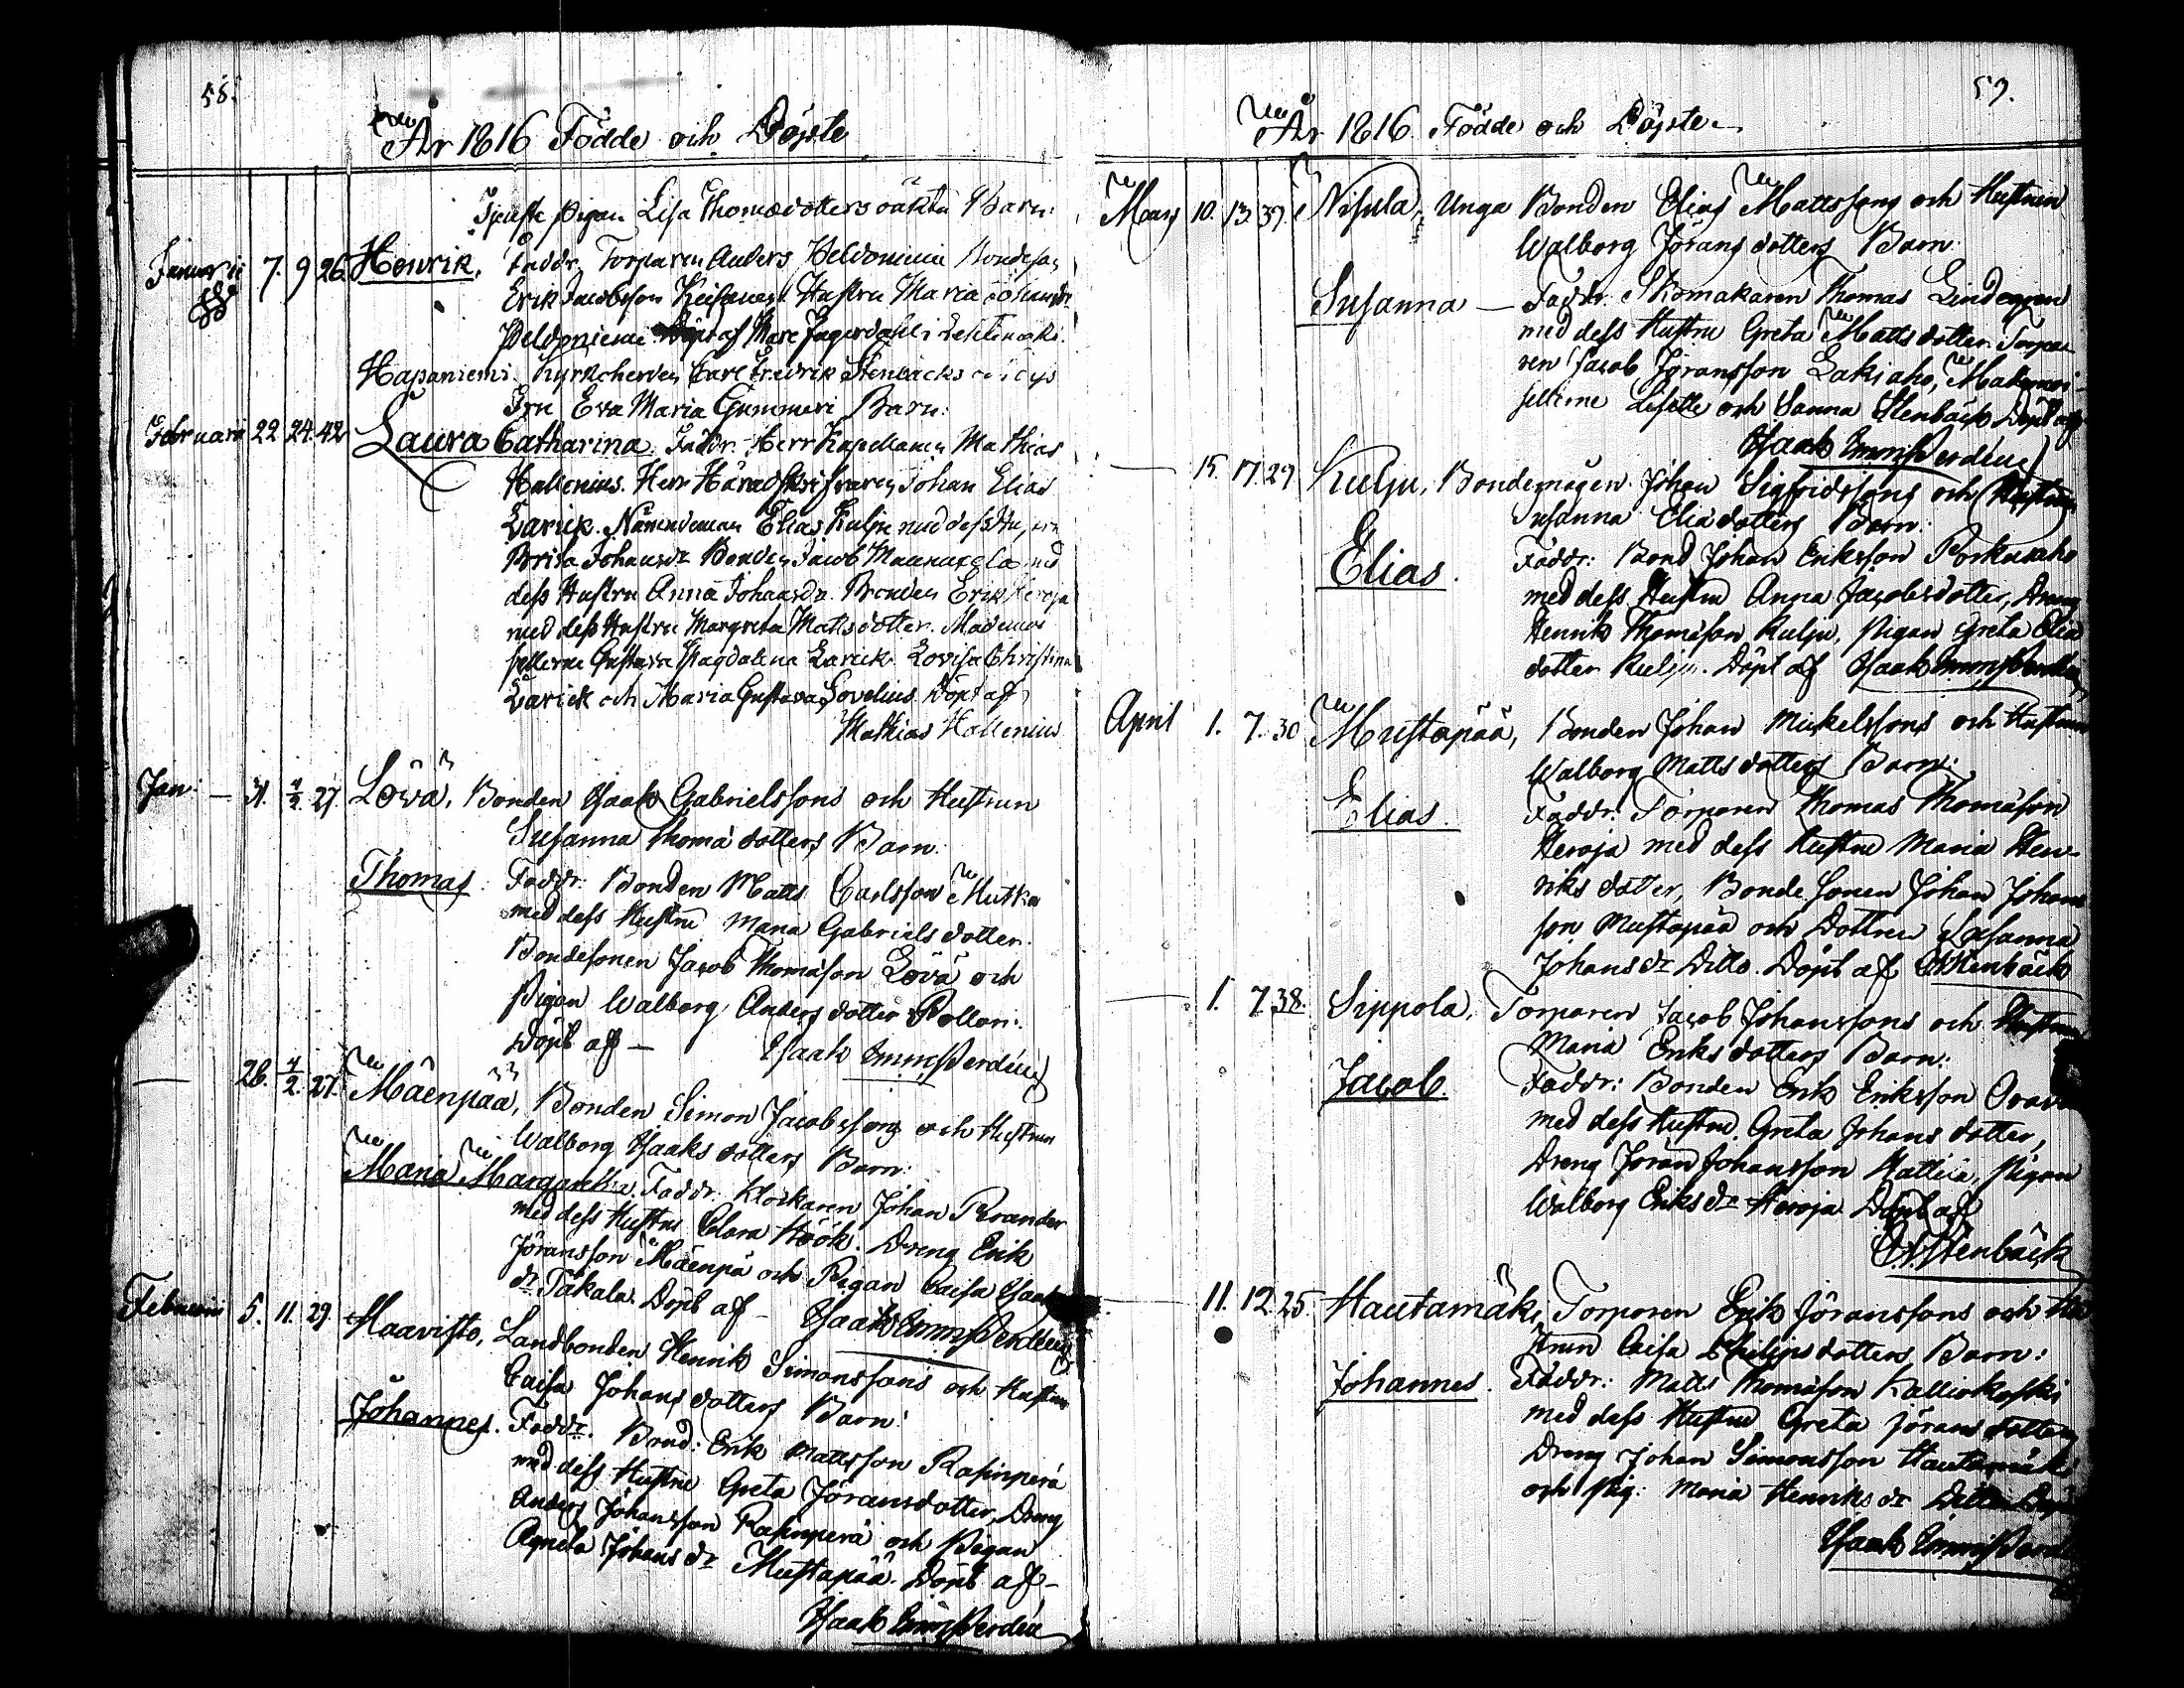 58.
År 1816 Födde och Döpte
Tjenste Pigan Lisa Thomædotters oäkta Barn:
Januarii 7. 9 26. Henrik. Faddr. Torparen Anders Peldoniemi Bondeson
Erik Jacobsson Hustru Maria Johansdr
Peldoniemi Döpt af Jagerdahl i
Hapaniemi. Kyrkoherden Carl Fredrik Stenbäcks och dess
Fru Eva Maria Gummeri Barn:
Februarii 22 24. 42 Laura Catharina. Faddr. Herr Kapellanen Mathias
Hallenius. Herr Häradsskrifvaren Johan Elias
Larick. Nämndeman Elias Kulju med dess Hustru
Brita Johansdr Bonden Jacob med
dess Hustru Anna Johansdr. Bonden Erik Heroja
med dess Hustru Margreta Mattsdotter. Mademoi
sellerne Gustava Magdalena Larick Lovisa Christina
Larick och Maria Gustava Lovelius. Döpt af
Mathias Hallenius
Jan: — 31. 4/2. 27. Lövä, Bonden Isaak Gabrielssons och Hustrun
Susanna Thomädotters Barn:
Thomas. Faddr: Bonden Matts Carlsson Mutka
med dess Hustru Maria Gabrielsdotter.
Bondesonen Jacob Thomäson Lövä och
Pigan Walborg Andersdotter Pollari.
Döpt af — Isaak Emm: Perdén
— 28. 4/2. 27. Mäenpää, Bonden Simon Jacobssons och Hustrun
Walborg Isaaksdotters Barn:
Maria Margaretha. Faddr: Klockaren Johan Brander
med dess Hustru Clara Höök. Dreng Erik
Jöransson Mäenpä och Pigan Caisa Isaaks
dr Täkala. Döpt af — Isaak Emm: Perdén
Februarii 5. 11. 29. Haavisto, Landbonden Henrik Simonssons och Hustrun
Caisa Johansdotters Barn:
Johannes. Faddr. Bond: Erik Mattsson Rasinperä
med dess Hustru Greta Jöransdotter, Dreng
Anders Johansson Rasinperä och Pigan
Agneta Johans dr Mustapää. Döpt af —
Isaak Emm: Perdén
59.
År 1816 Födde och Döpte
Mars 10. 13 39. Nisula, Unga Bonden Elias Mattssons och Hustrun
Walborg Jöransdotters Barn:
Susanna — Faddr: Skomakaren Thomas Lindegren
med dess Hustru Greta Mattsdotter. Torpa
ren Jacob Jöransson Lakiaho, Mademoi
sellerne Lisette och Sanna Stenbäck Döpt af
Isaak Emm: Perdén
— 15. 17. 29 Kulju, Bondemågen Johan Sigfridssons och Hustrun
Susanna Eliädotters Barn:
Elias. Faddr: Bond Johan Eriksson Porkuaho
med dess Hustru Anna Jacobsdotter, Dreng
Henrik Thomäson Kulju, Pigan Greta Eliä
dotter Kulju. Döpt af Isaak Emm: Perdén
April 1. 7. 30 Mustapää, Bonden Johan Mickelssons och Hustrun
Walborg Mattsdotters Barn:
Elias. Faddr: Torparen Thomas Thomäson
Heroja med dess Hustru Maria Hen-
riksdotter, Bonde Sonen Johan Johans
son Mustapää och Dottren Susanna
Johansdr Ditto. Döpt af CFStenbäck
— 1. 7. 38. Sippola, Torparen Jacob Johanssons och Hustrun
Maria Eriksdotters Barn:
Jacob. Faddr: Bonden Erik Eriksson
med dess Hustru Greta Johansdotter,
Dreng Jöran Johansson Mattila, Pigan
Walborg Eriksdr Heroja Döpt af
C.F.Stenbäck
— 11. 12 25. Hautamäki, Torparen Erik Jöranssons och Hu
strun Caisa Philipsdotters Barn:
Johannes. Faddr: Matts Thomäson Kalliokoski
med dess Hustru Greta Jöransdotter
Dreng Johan Simonsson Hautamäki
och Pig: Maria Henriks dr Ditto Döpt
Isaak Emm: Perdén